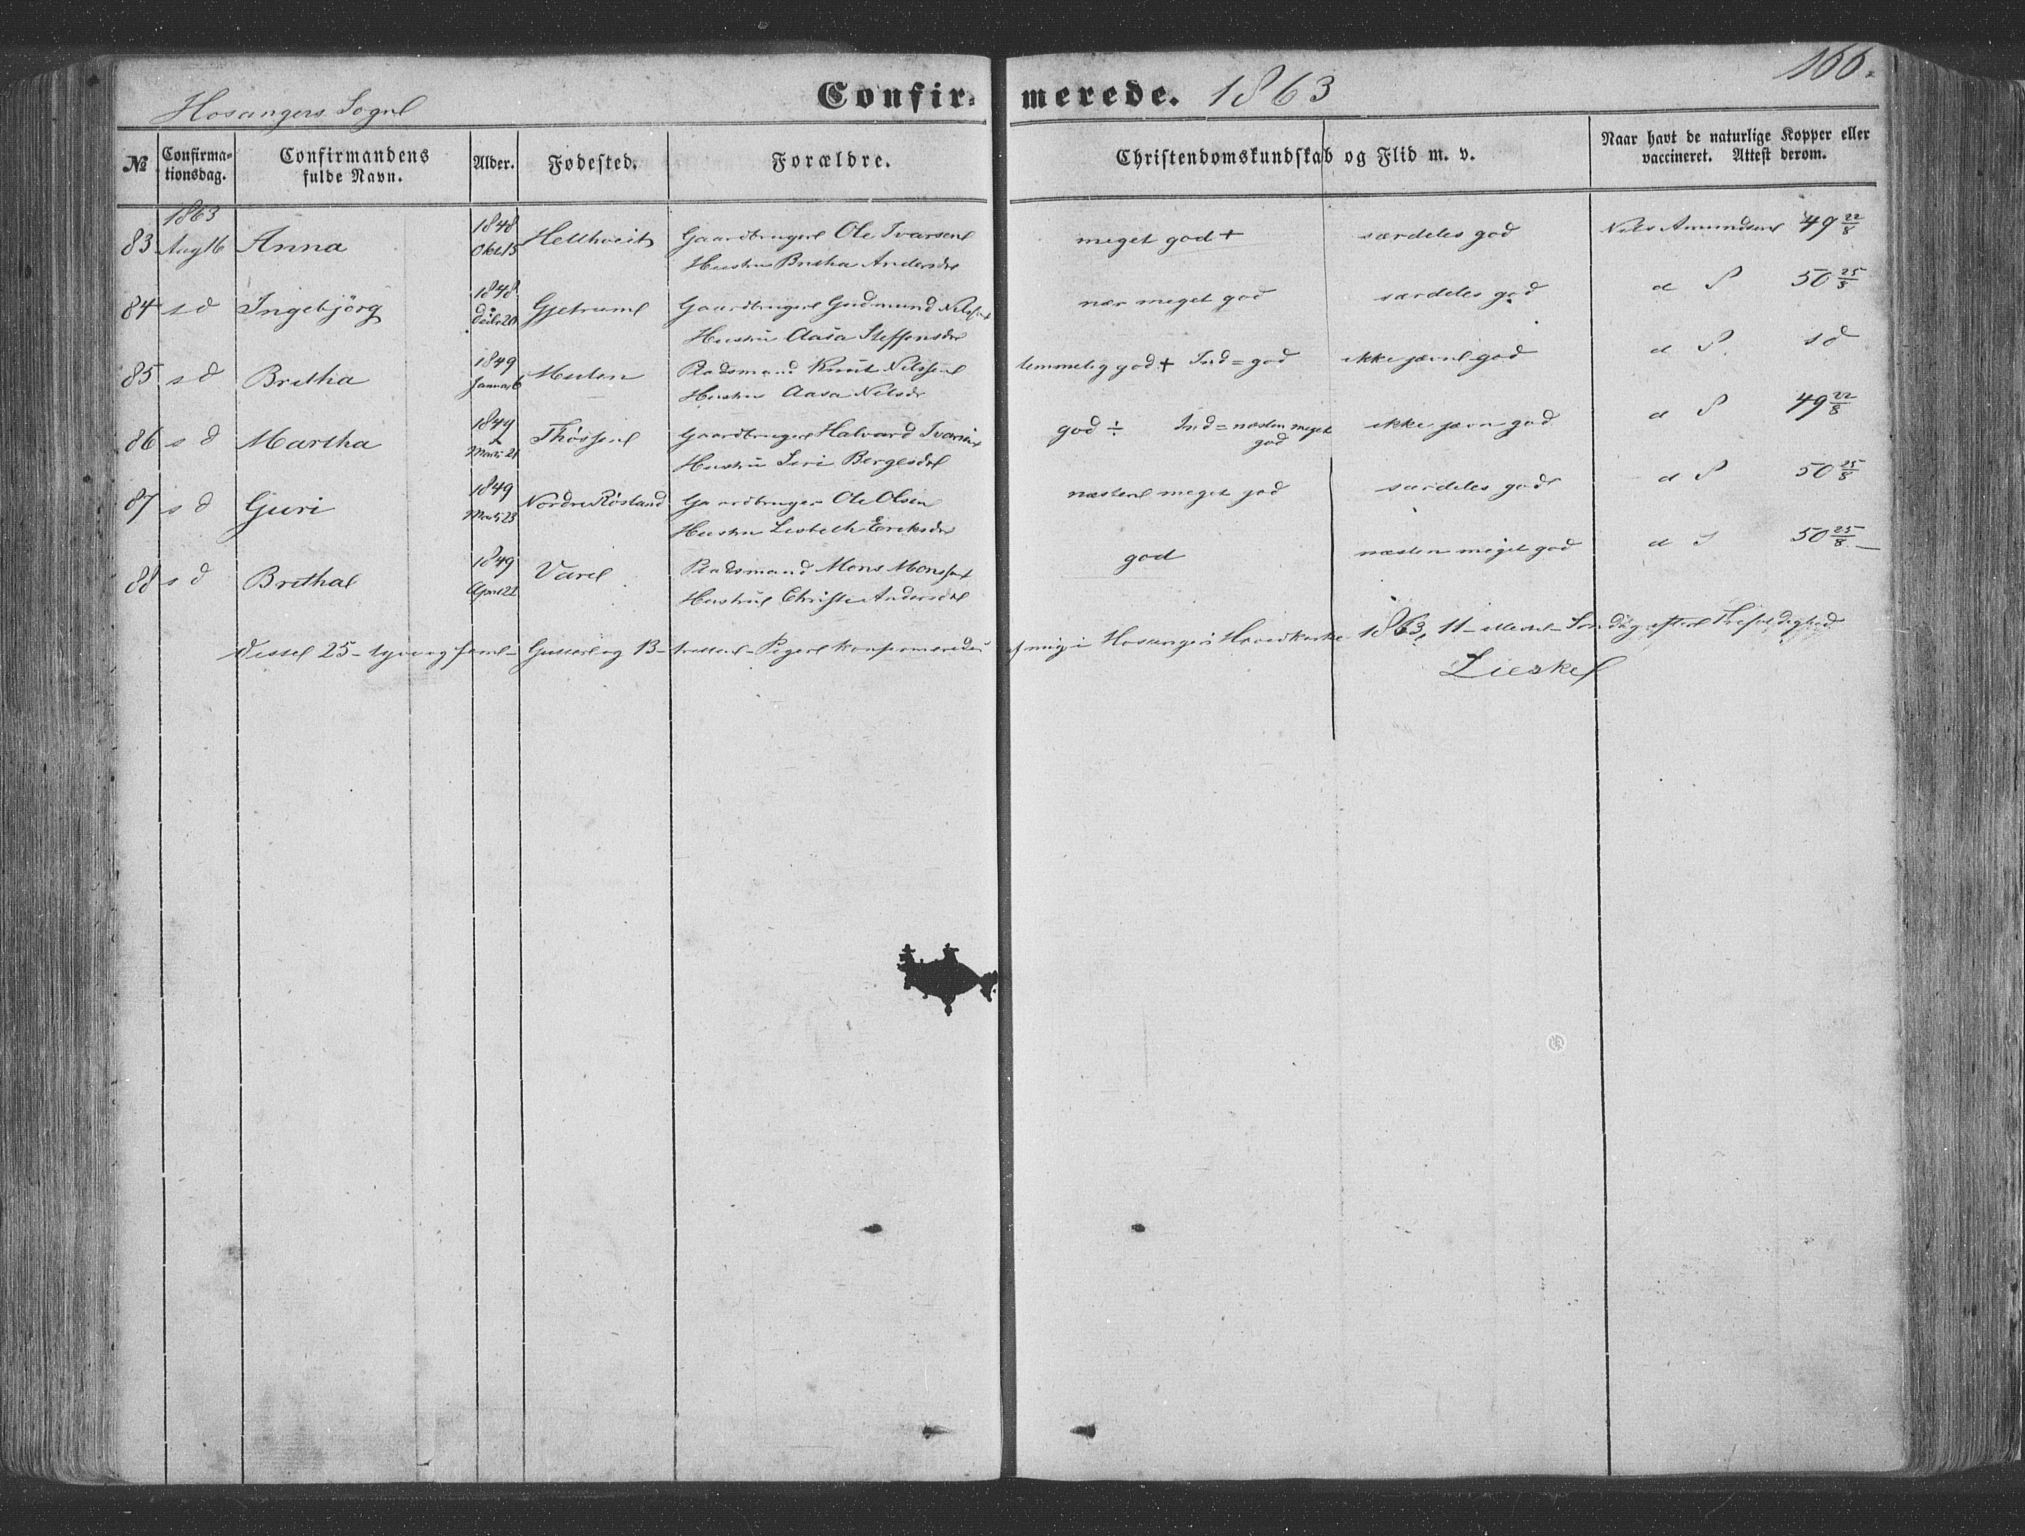 166.
Hosangers Sogn
Confirmerede. 1863
№ Confirmationsdag. Confirmandens fulde Navn. Alder. Fødested. Forældre. Christendomskundskab og Flid m. v. Naar havt de naturlige Kopper eller vaccineret. Attest derom.
1863
83 Aug 16 Anna 1848 Okt 15 Hellhveit Gaardbruger Ole Ivarsen meget god + særdeles god Niels Amundsen 49 22/8
Hustru Britha Andersdr
84 s d Ingebjörg 1848 Gjetrum Gaardbruger Gudmund Nilssen nær meget god særdeles god d S 50 25/8
Hustru Aasa Steffensdr
85 s d Britha 1849 Januar 6 Muten Pladsmand Knut Nilssen temmelig god + Ind = god ikke jævn god d S. s d
Hustru Aasa Nilsdr
86 s d Martha 1849 Marts 21 Gaardbruger Halvard Ivarsen god ÷ Ind = næsten meget god ikke jævn god d S 49 22/8
Hustru Siri Børgesdr
87 s d Guri 1849 Marts 23 Nordre Røsland Gaardbruger Ole Olsen næsten meget god særdeles god d S 50 25/8
Hustru Lisbeth Eriksdr
88 s d Britha 1849 April 21 Pladsmand Mons Monsen god næsten meget god d S 50 25/8
Hustru Christi Andersdr
Disse 25 - tyve og fem - Gutter og 13 - tretten - Piger konfirmerede af mig i Hosanger Hovedkirke 1863, 11 - ellevte - Søndag efter Trefoldighed
Zieske